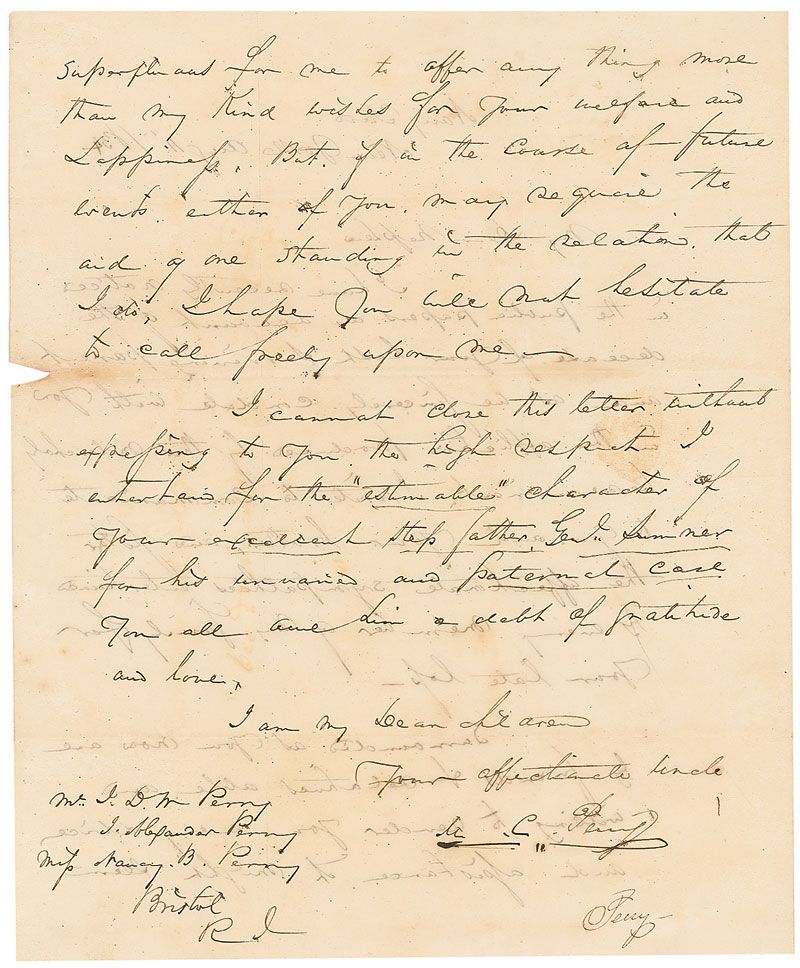 superfluous for me to offer any thing more
than my kind wishes for your welfare and
happiness. But if in the course of future
events, either of you, may require the
aid of one standing in the relation, that
I do, I hope you will not hesitate
to call freely upon me—
I cannot close this letter without
expressing to you the high respect I
entertain for the "estimable" character of
your excellent step father, Genl. Sumner
for his unvaried and paternal care
you all owe him a debt of gratitude
and love,
I am my dear children
Your affectionate Uncle
M. C. Perry
Mr. J. D W Perry
J. Alexander Perry
Miss Nancy. B. Perry
Bristol
R I
Perry